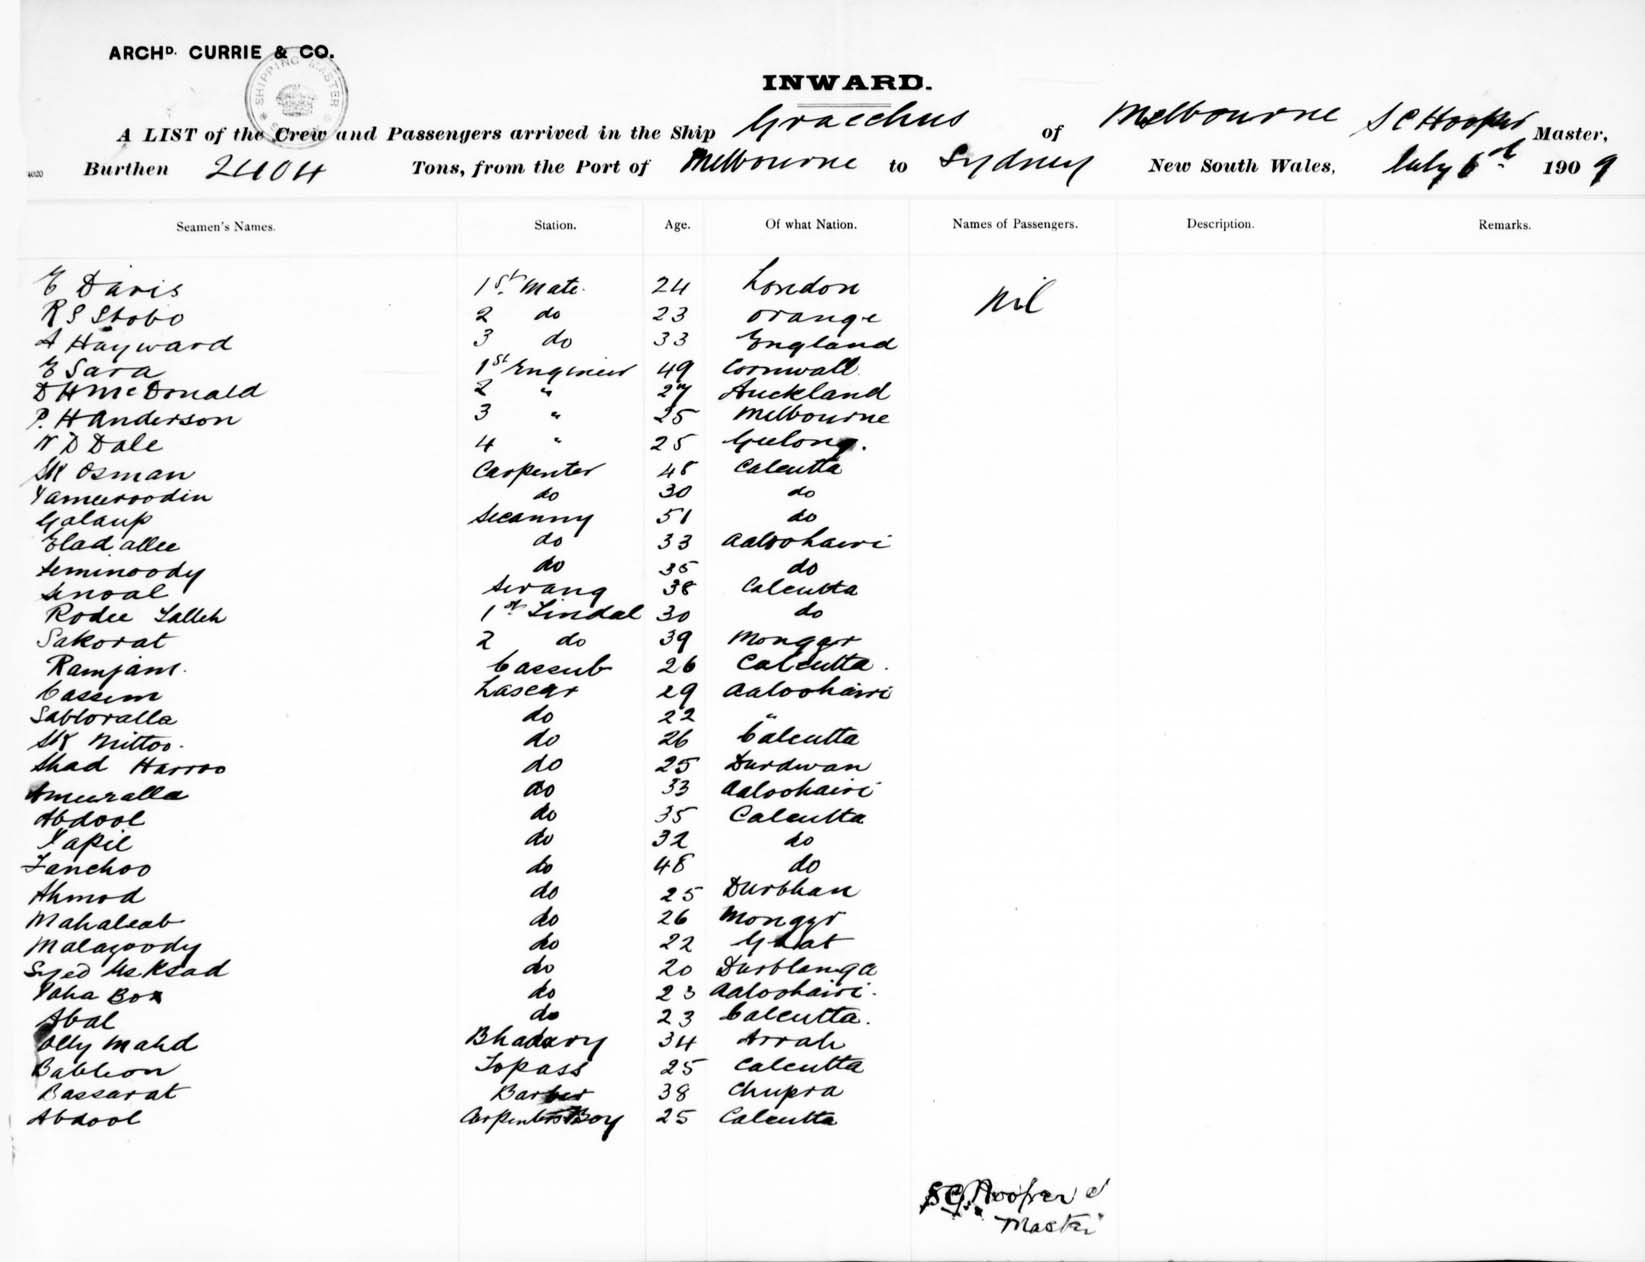 ARCHD. CURRIE & CO.
SHIPPING MASTER
INWARD.
A LIST of the Crew and Passengers arrived in the Ship Gracchus of Melbourne S C Hooper Master,
Burthen 2404 Tons, from the Port of Melbourne to Sydney New South Wales, July 6th 1909
Seamen's Names. Station. Age. Of what Nation. Names of Passengers. Description. Remarks.
E Davis 1st Mate. 24 London Nil
R S Stobo 2 do 23 Orange
A Hayward 3 do 33 England
E Sara 1st Engineer 49 Cornwall
D H McDonald 2 " 27 Auckland
P. H Anderson 3 " 25 Melbourne
W D Dale 4 " 25 Geelong.
SK Osman Carpenter 48 Calcutta
Yameeroodin do 30 do
Golaup Secanny 51 do
Elad allee do 33 Aaloohairi
Seminoody do 35 do
Senoal Serang 38 Calcutta
Rodee Salleh 1st Tindal 30 do
Sakorat 2 do 39 Mongyr
Ramjam. Cassub 26 Calcutta.
Cassim Lascar 29 Aaloohairi
Sabloralla do 22 "
SK Mittoo. do 26 Calcutta
Shad Harroo do 25 Durdwan
Ameeralla do 33 Aaloohairi
Abdool do 35 Calcutta
Yapil do 32 do
Fanchoo do 48 do
Ahmod do 25 Durbhan
Mahaleab do 26 Mongyr
Malagoody do 22 Ghat
Syed do 20 Durblanga
Yaha Box do 23 Aaloohairi.
Abal do 23 Calcutta.
Olly Mahd Bhadary 34 Arrah
Bableon Topass 25 Calcutta
Bassarat Barber 38 Chupra
Abdool Carpenters Boy 25 Calcutta
S C Hooper
Master